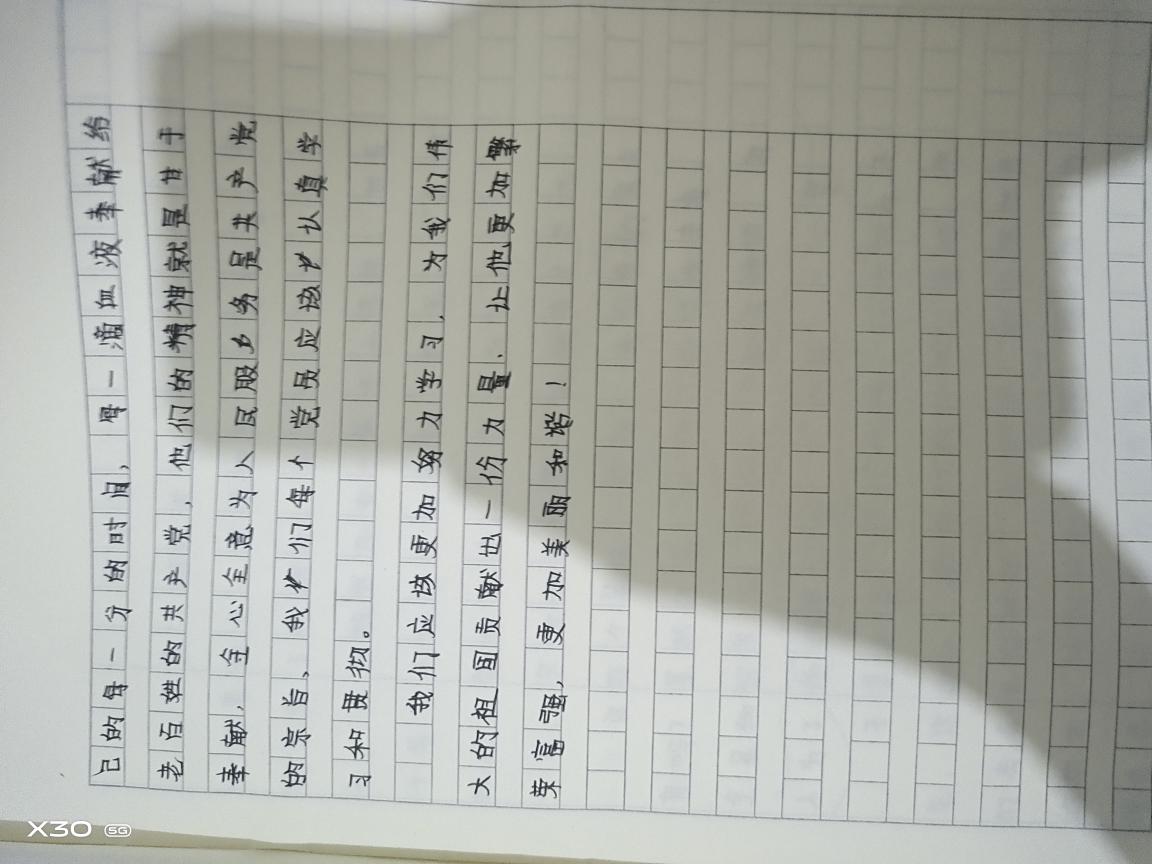 己的每一分的时间，每一滴血液奉献给
老百姓的共产党，他们的精神就是甘于
奉献，全心全意为人民服务是共产党
的宗旨、我们每个党员应该认真学
习和贯彻。
我们应该更加努力学习，为我们伟
大的祖国贡献出一份力量、让他更加繁
荣富强，更加美丽和谐！
X30 5G